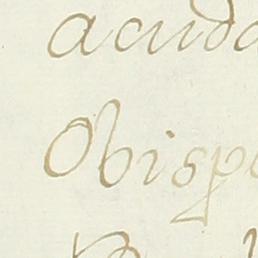 acuda
Obispo